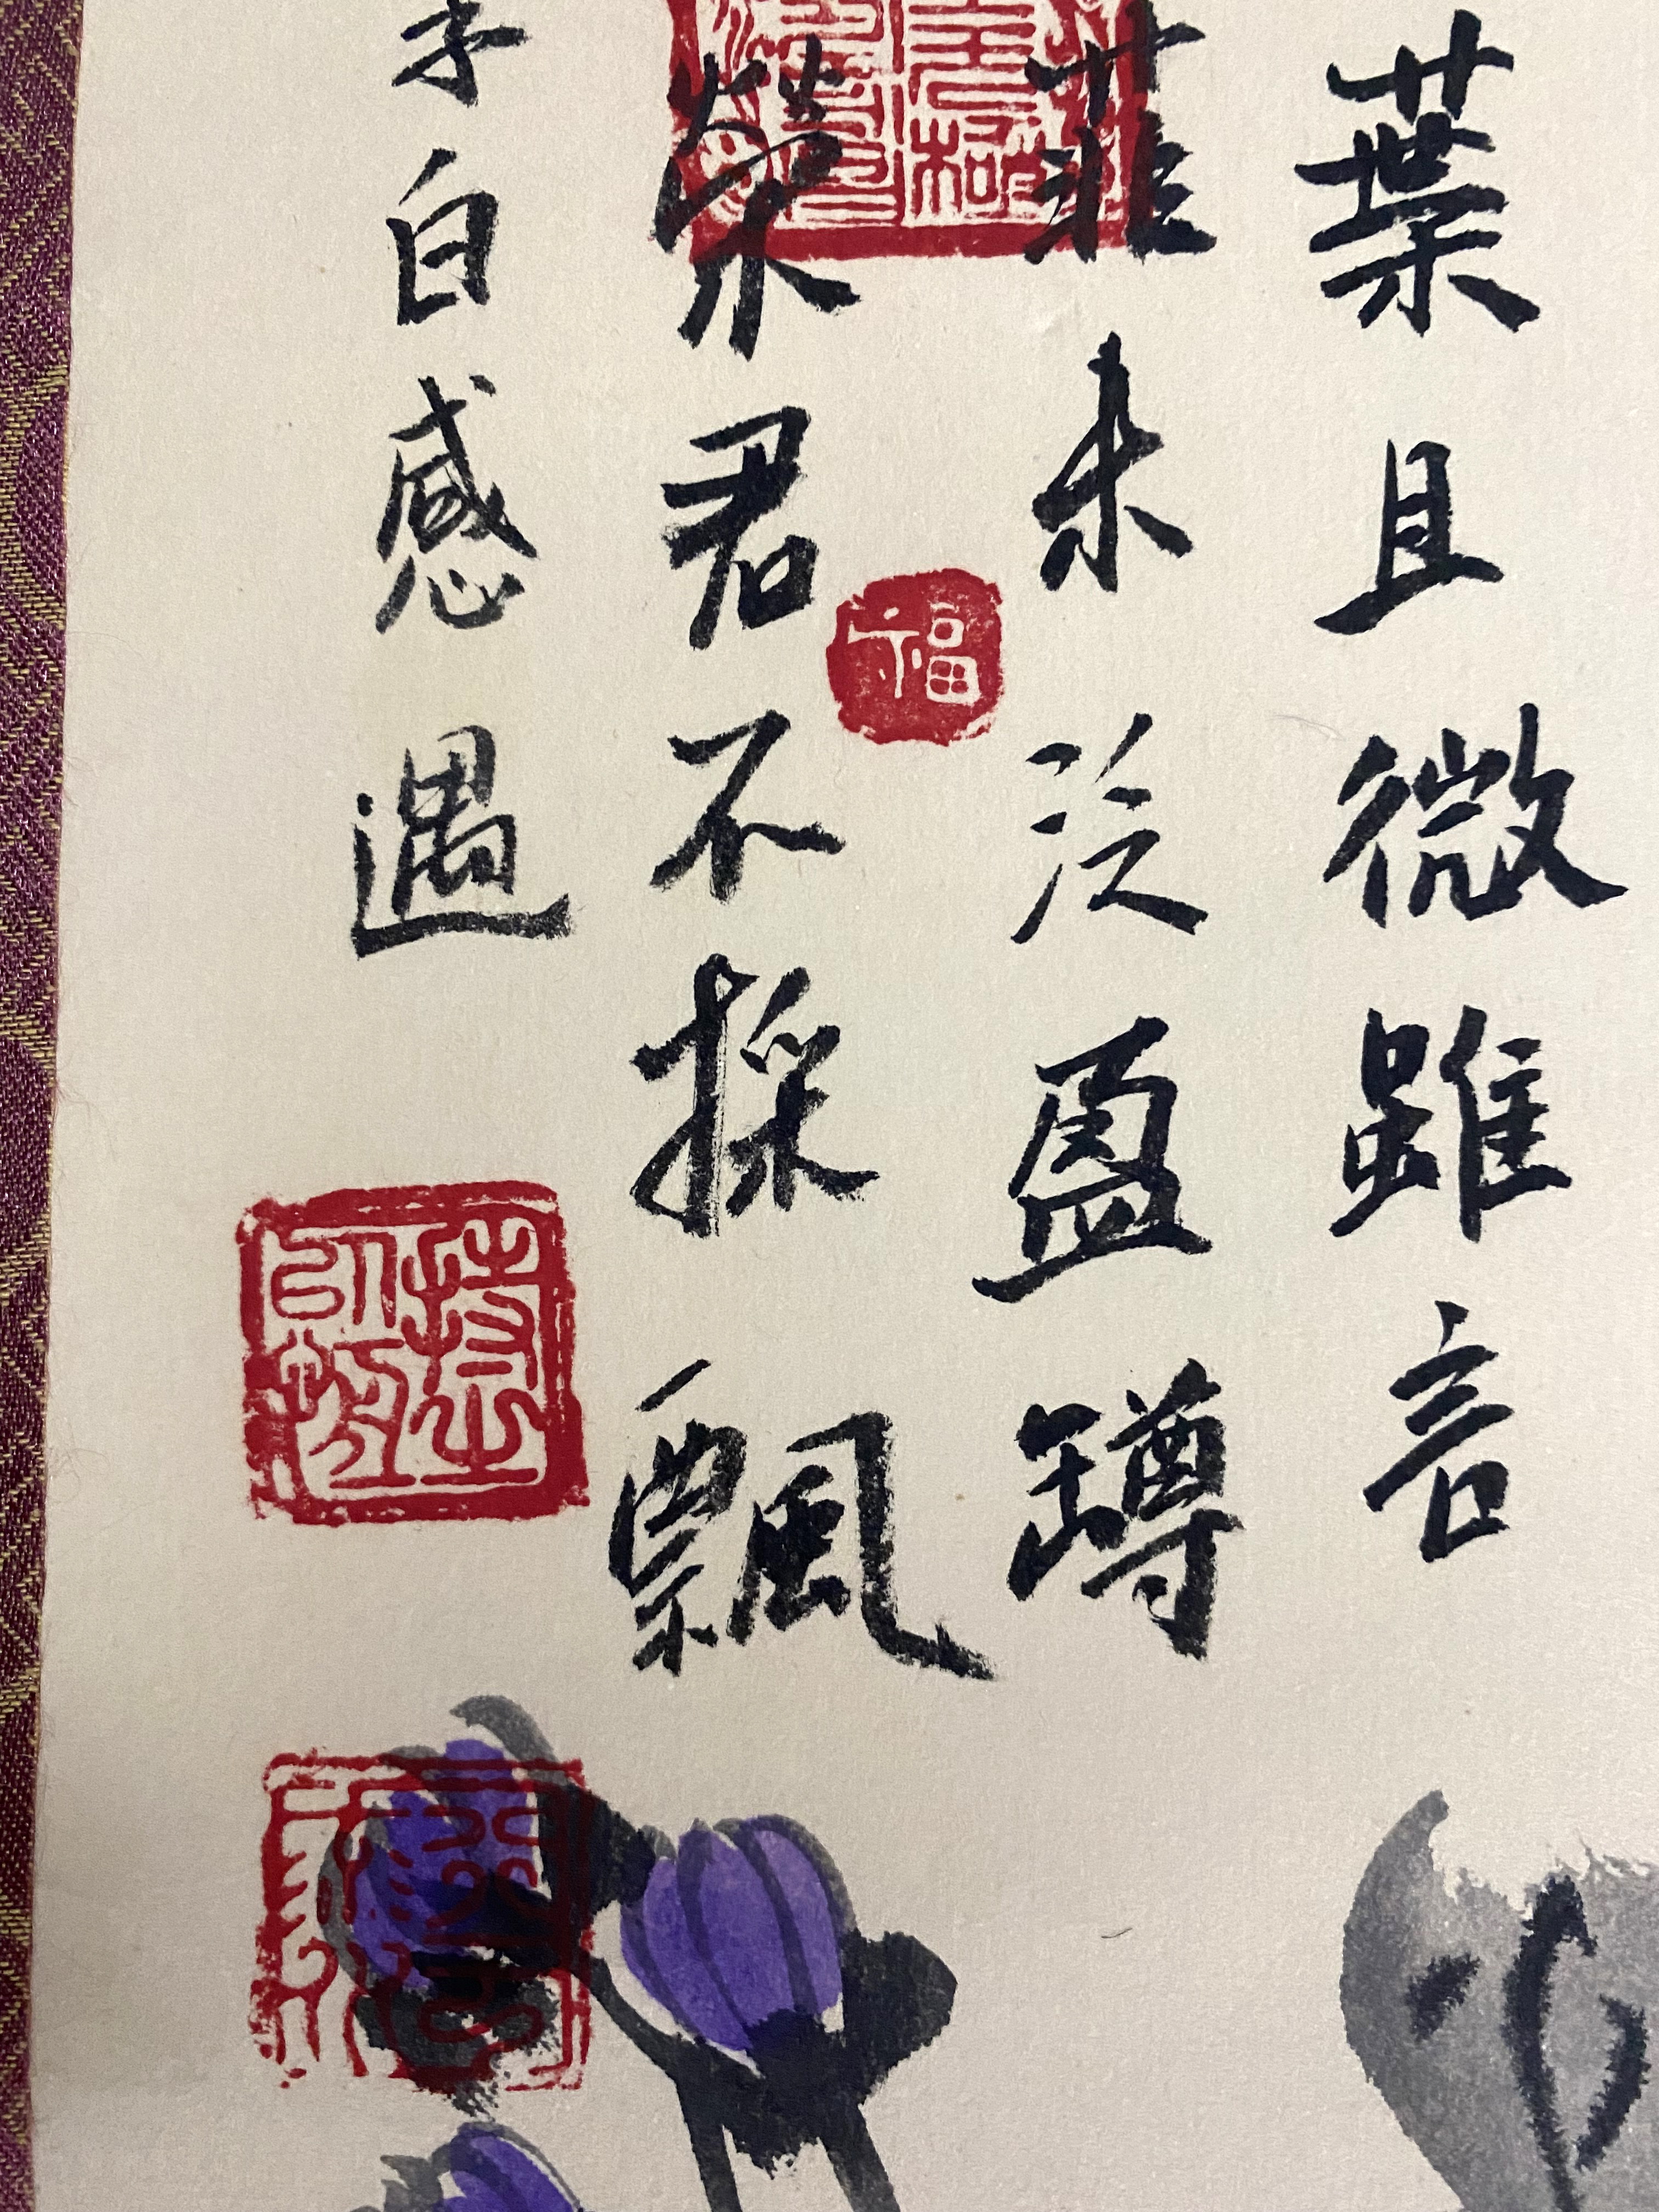 葉且微雖言
菲未泛盈罇
榮君不採飄
李白感遇
福